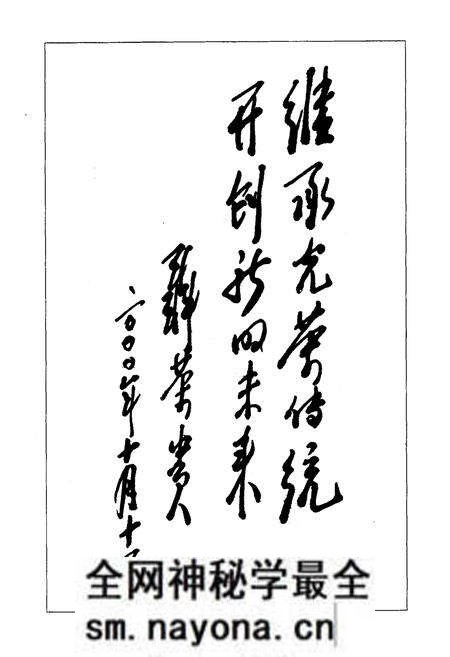 继承光荣传统
开创新的未来
聂荣贵
二〇〇〇年十月十
全网神秘学最全
sm.nayona.cn